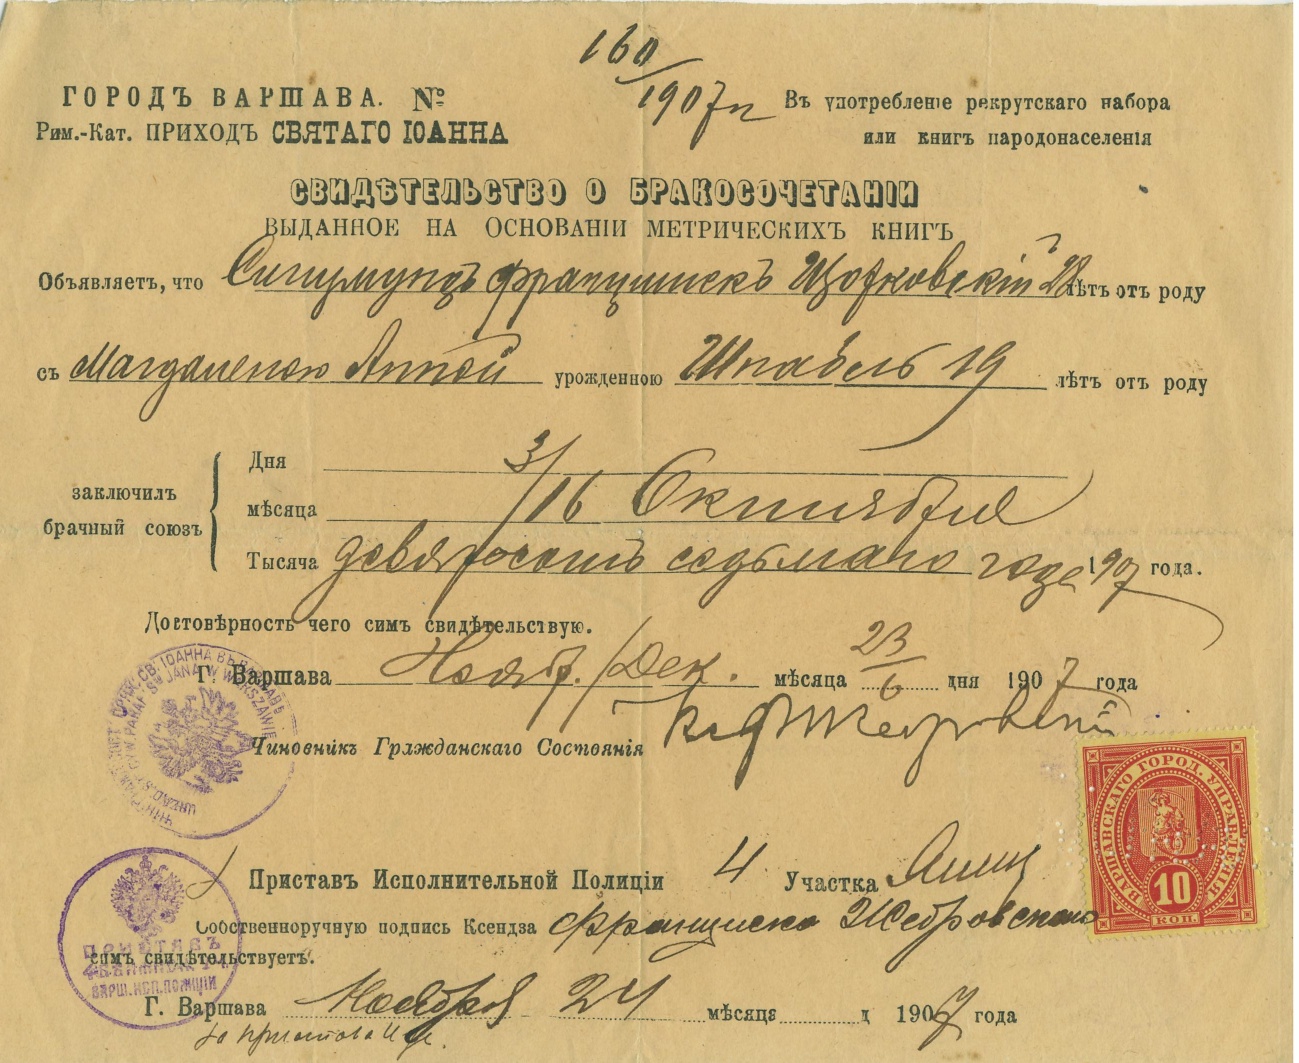 160/1907 г.
ГОРОДЪ ВАРШАВА. №
Рим.-Кат. ПРИХОДЪ СВЯТАГО ІОАННА
Въ употребленіе рекрутскаго набора
или книгъ народонаселенія
СВИДѢТЕЛЬСТВО О БРАКОСОЧЕТАНІИ
ВЫДАННОЕ НА ОСНОВАНІИ МЕТРИЧЕСКИХЪ КНИГЪ
Объявляетъ, что Сигизмундъ Францискъ 28 лѣтъ отъ роду
съ Магдаленою Анной урожденною Шнабель 19 лѣтъ отъ роду
заключилъ брачный союзъ
Дня 3/16
мѣсяца Октября
Тысяча девятьсотъ седьмаго года 1907 года.
Достовѣрность чего симъ свидѣтельствую.
Г. Варшава Нояб./Дек. мѣсяца 23/6 дня 1907 года
Чиновникъ Гражданскаго Состоянія
ВАРШАВСКАГО ГОРОД. УПРАВЛЕНІЯ
10
КОП.
Приставъ Исполнительной Полиціи 4 Участка
Собственноручную подпись Ксендза Франциска Жебровскаго
симъ свидѣтельствуетъ.
Г. Варшава Ноября 24 мѣсяца д 1907 года
За Пристава
ПРИСТАВЪ
ВАРШ. ИСП. ПОЛИЦІИ